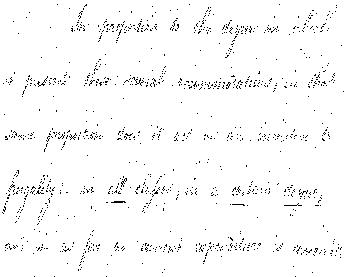 In proportion to the degree in which
it presents these several remunerations, in that
same proportion does it act as an incentive to
frugality: in all classes, in a certain degree,
and in as far as annual expenditure is